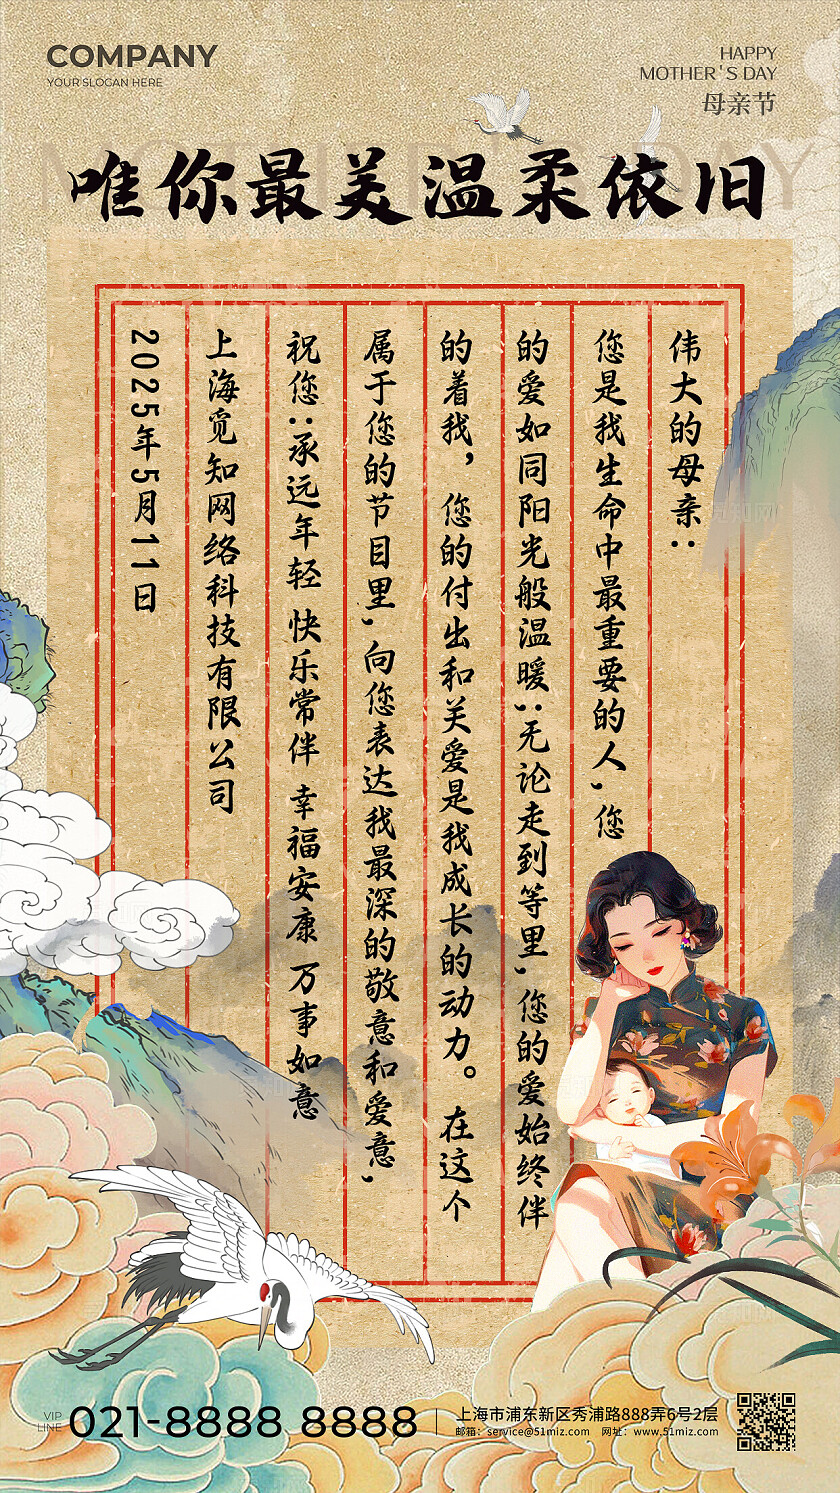 COMPANY
YOUR SLOGAN HERE
HAPPY
MOTHER'S DAY
母亲节
唯你最美温柔依旧
伟大的母亲：
您是我生命中最重要的人，您
的爱如同阳光般温暖；无论走到等里，您的爱始终伴
的着我，您的付出和关爱是我成长的动力。在这个
属于您的节目里，向您表达我最深的敬意和爱意，
祝您：承远年轻 快乐常伴 幸福安康 万事如意
上海觅知网络科技有限公司
2025年5月11日
VIP
LINE
021-8888 8888
上海市浦东新区秀浦路888弄6号2层
邮箱：service@51miz.com 网址：www.51miz.com